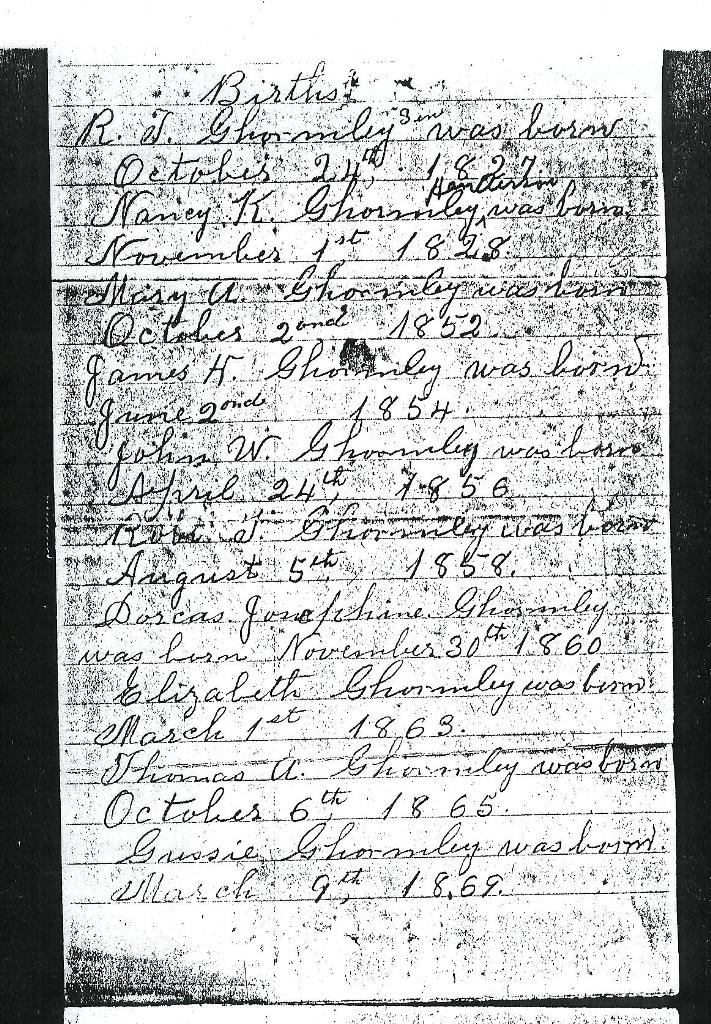 Births
R. T. Ghormley Sen was born
October 24th 1827
Henderson
Nancy K. Ghormley was born
November 1st 1828.
Mary A. Ghormley was born
October 2ond 1852
James H. Ghormley was born
June 2ond 1854.
John W. Ghormley was born
April 24th, 1856
Robt. T Ghormley was born
August 5th, 1858.
Dorcas Josephine Ghormley
was born November 30th 1860
Elizabeth Ghormley was born
March 1st 1863.
Thomas A. Ghormley was born
October 6th, 1865.
Gussie Ghormley was born.
March 9th, 1869.